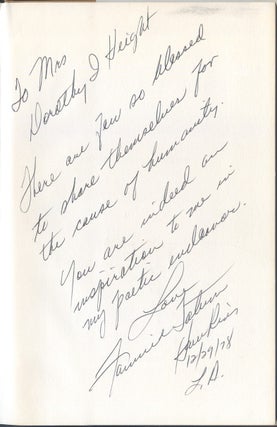 To Mrs
Dorothy I Height
There are few so blessed
to share themselves for
the cause of humanity.
You are indeed an
inspiration to me in
my poetic endeavor.
Love
Fannie
12/29/78
L.A.